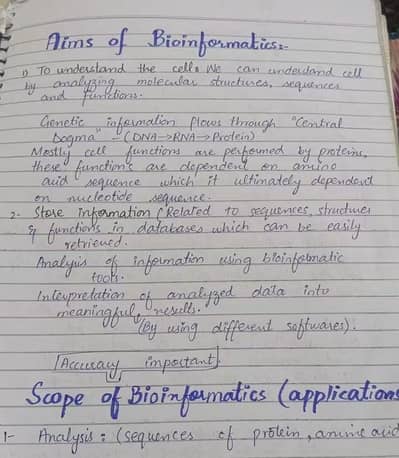 Aims of Bioinformatics:-
1) To understand the cell: We can understand cell
by analyzing molecular structures, sequences
and functions.
Genetic information flows through "Central
Dogma" - (DNA→RNA→Protein)
Mostly cell functions are performed by proteins,
these functions are dependent on amino
acid sequence which it ultimately dependent
on nucleotide sequence.
2- Store information (Related to sequences, structures
& functions in databases which can be easily
retrieved.
Analysis of information using bioinformatic
tools.
Interpretation of analyzed data into
meaningful results.
(By using different softwares).
Accuracy important
Scope of Bioinformatics (applications
1- Analysis: (sequences of protein, amino acid